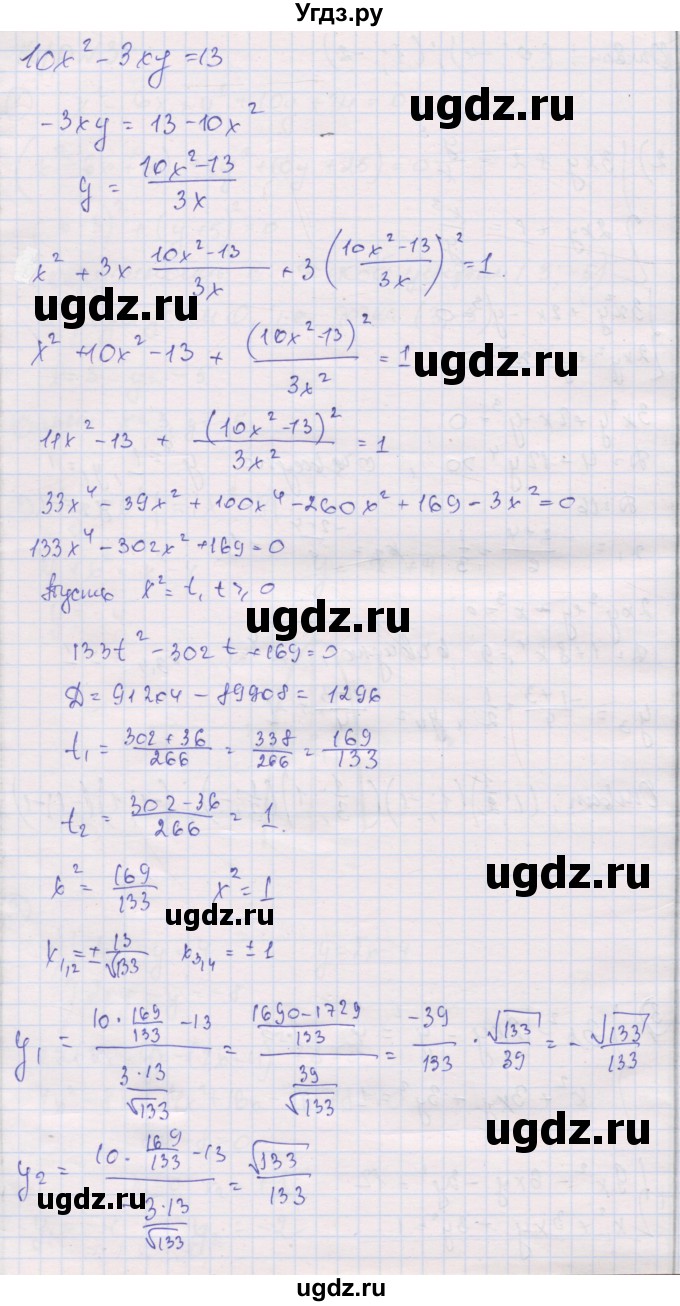 Угдз.ру
10x² - 3xy = 13
ugdz.ru
-3xy = 13 - 10x²
y = (10x² - 13)/(3x)
x² + 3x (10x² - 13)/(3x) + 3 ((10x² - 13)/(3x))² = 1.
ugdz.ru
ugdz.ru
x² + 10x² - 13 + (10x² - 13)²/(3x²) = 1
11x² - 13 + (10x² - 13)²/(3x²) = 1
33x⁴ - 39x² + 100x⁴ - 260x² + 169 - 3x² = 0
133x⁴ - 302x² + 169 = 0
Пусть x² = t, t ⩾ 0
ugdz.ru
133t² - 302t + 169 = 0
Д = 91204 - 89908 = 1296
t₁ = (302 + 36)/266 = 338/266 = 169/133
t₂ = (302 - 36)/266 = 1.
ugdz.ru
x² = 169/133 x² = 1
ugdz.ru
x₁,₂ = ± 13/√133 x₃,₄ = ± 1
y₁ = (10 · 169/133 - 13)/(3·13/√133) = ((1690 - 1729)/133)/(39/√133) = -39/133 · √133/39 = - √133/133
ugdz.ru
y₂ = (10 · 169/133 - 13)/(- 3·13/√133) = √133/133
ugdz.ru
ugdz.ru